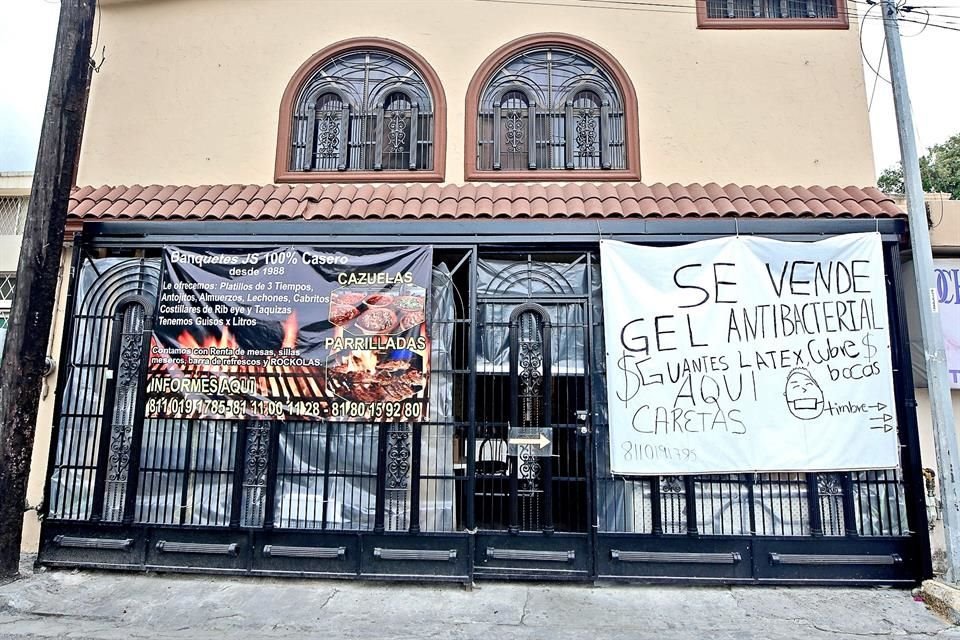 Banquetes JS 100% Casero
desde 1988
Le ofrecemos: Platillos de 3 Tiempos,
Antojitos, Almuerzos, Lechones, Cabritos
Costillares de Rib eye y Taquizas
Tenemos Guisos x Litros
CAZUELAS
PARRILLADAS
Contamos con Renta de mesas, sillas
meseros, barra de refrescos y ROCKOLAS.
INFORMES AQUÍ
811 019 1785-81 11 00 11 28 - 81 80 15 92 80
SE VENDE
GEL ANTIBACTERIAL
$GUANTES LATEX Cubre $
bocas
AQUI
CARETAS
timbre
8110191785